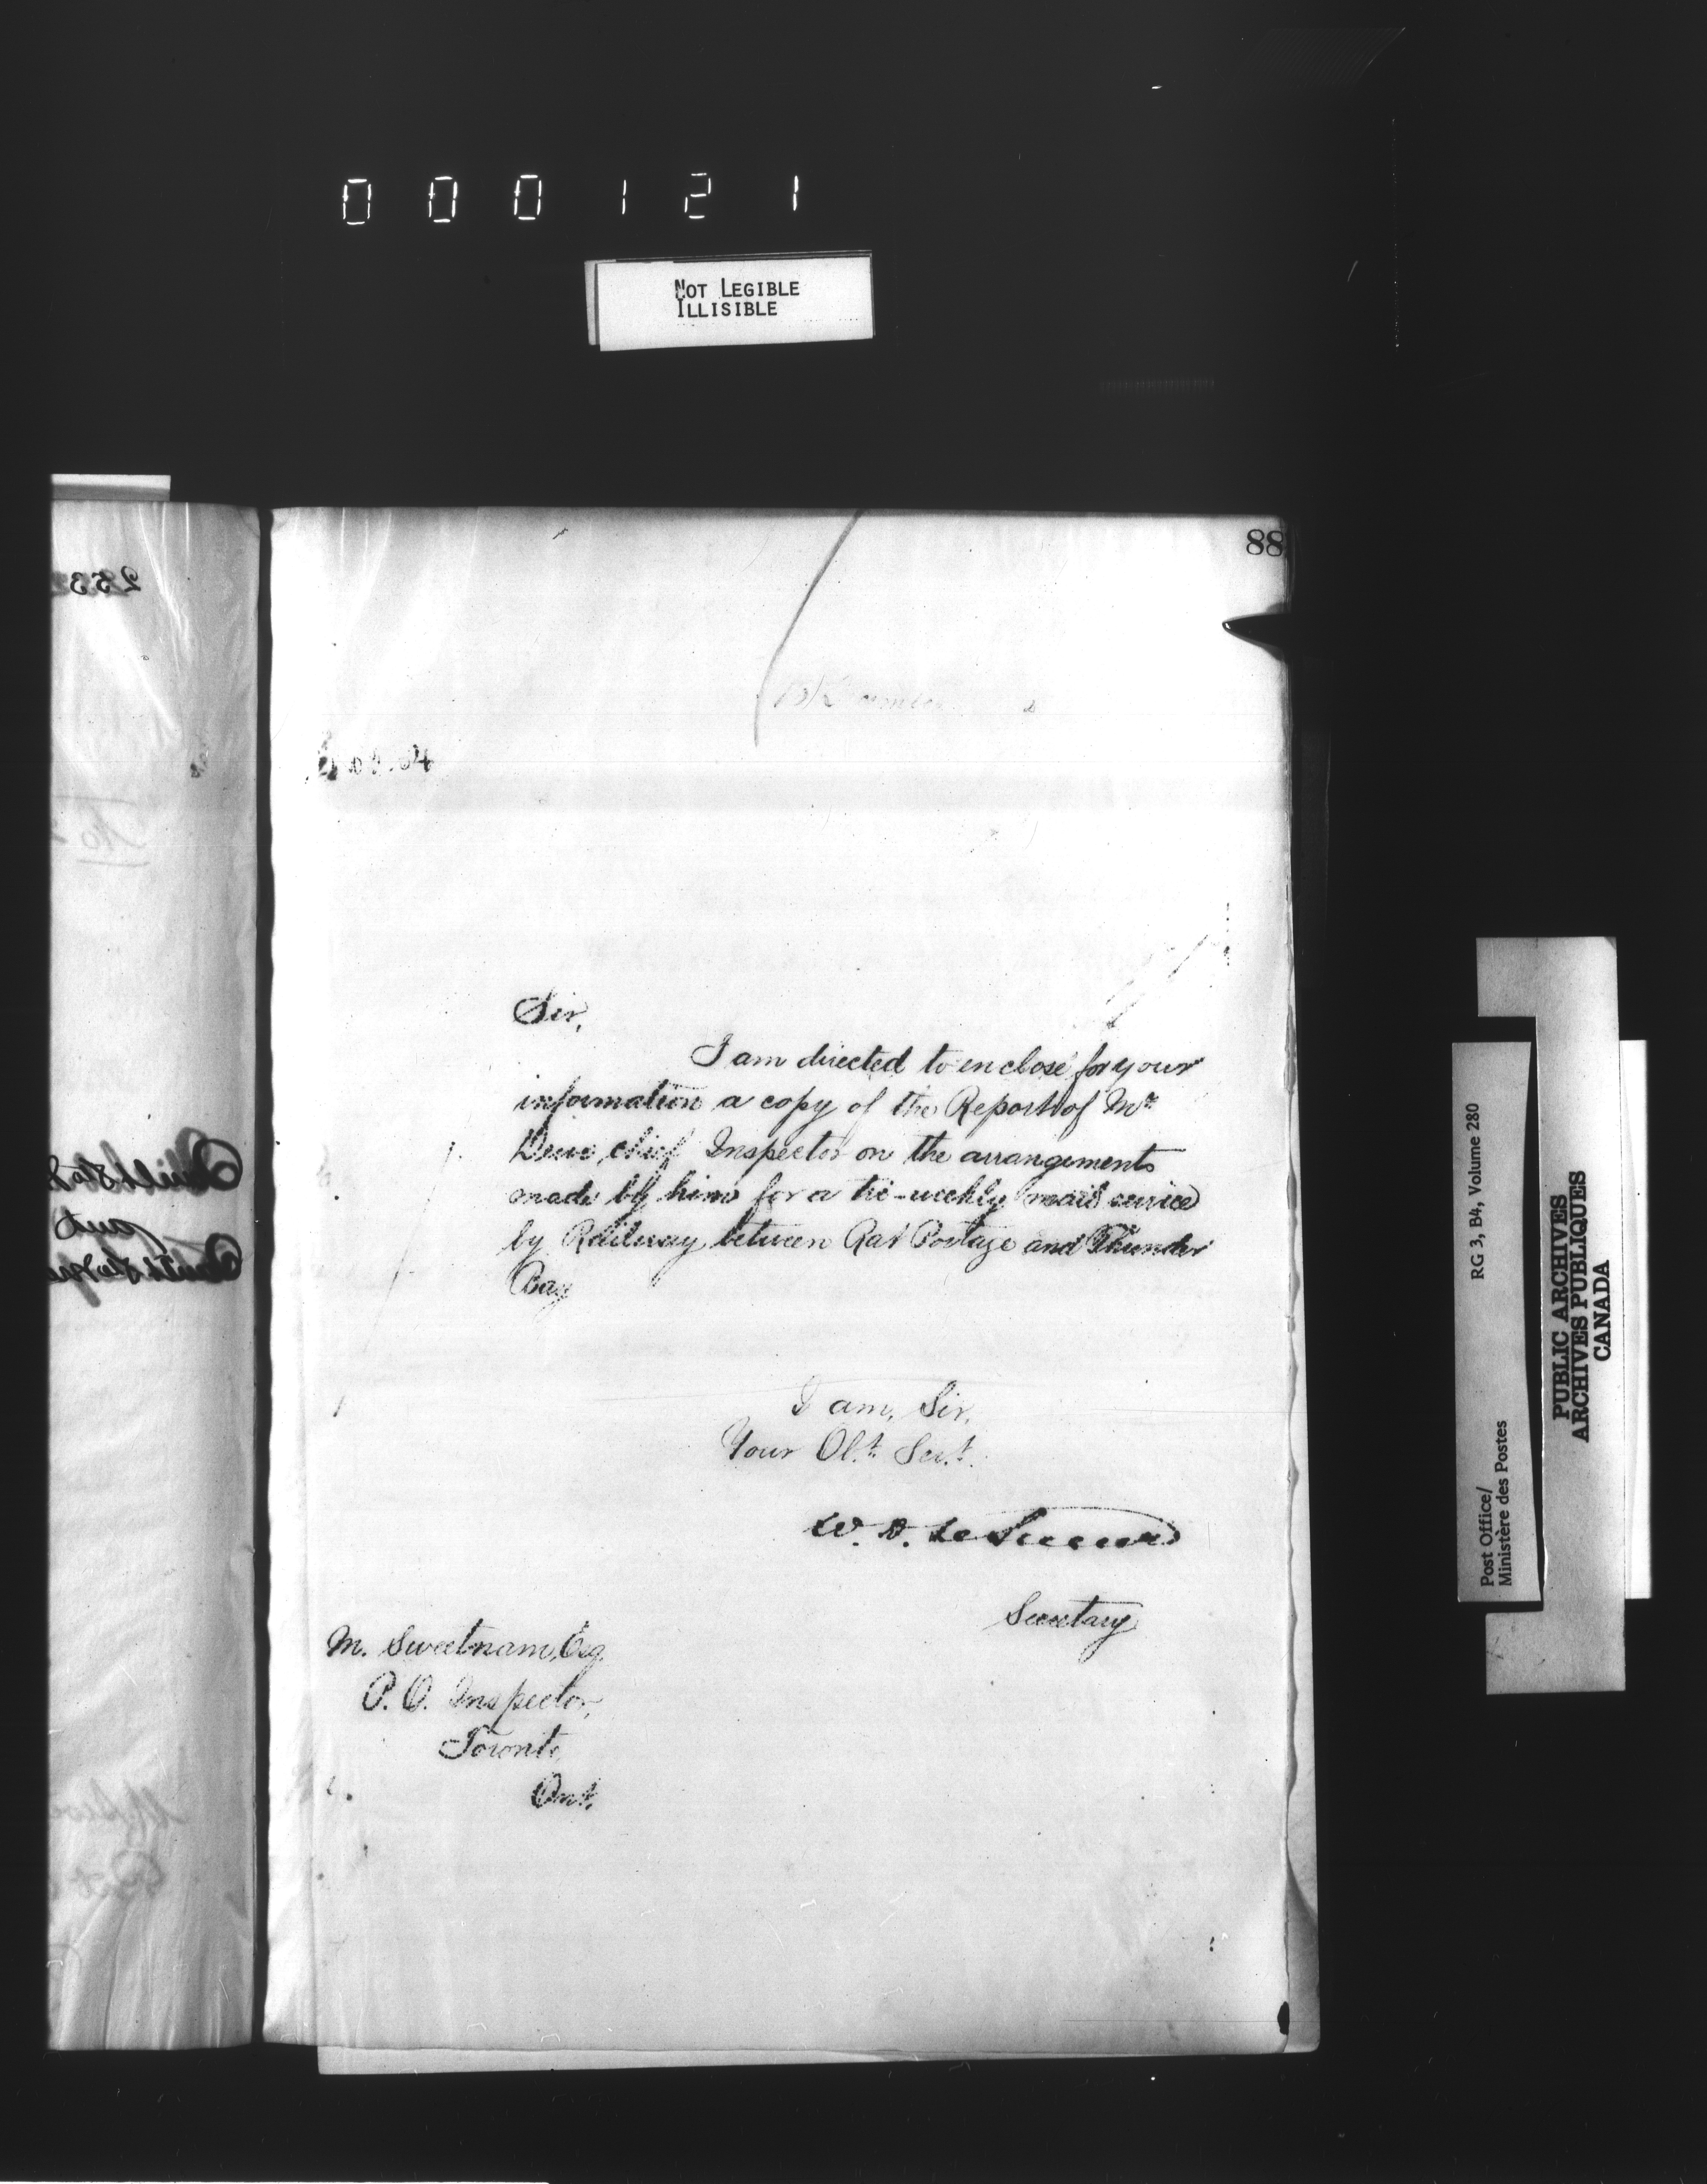 000121
NOT LEGIBLE
ILLISIBLE
88
Sir,
I am directed to enclose for your
information a copy of the Report of Mr
Dewe, chief Inspector on the arrangements
made by him for a tri-weekly mail service
by Railway between Rat Portage and Thunder
Bay
I am, Sir,
Your Obt. Sert.
W. D. LeSueur
Secretary
M. Sweetnam, Esq.
P. O. Inspector,
Toronto,
Ont.
Post Office/
Ministère des Postes
RG 3, B4, Volume 280
PUBLIC ARCHIVES
ARCHIVES PUBLIQUES
CANADA